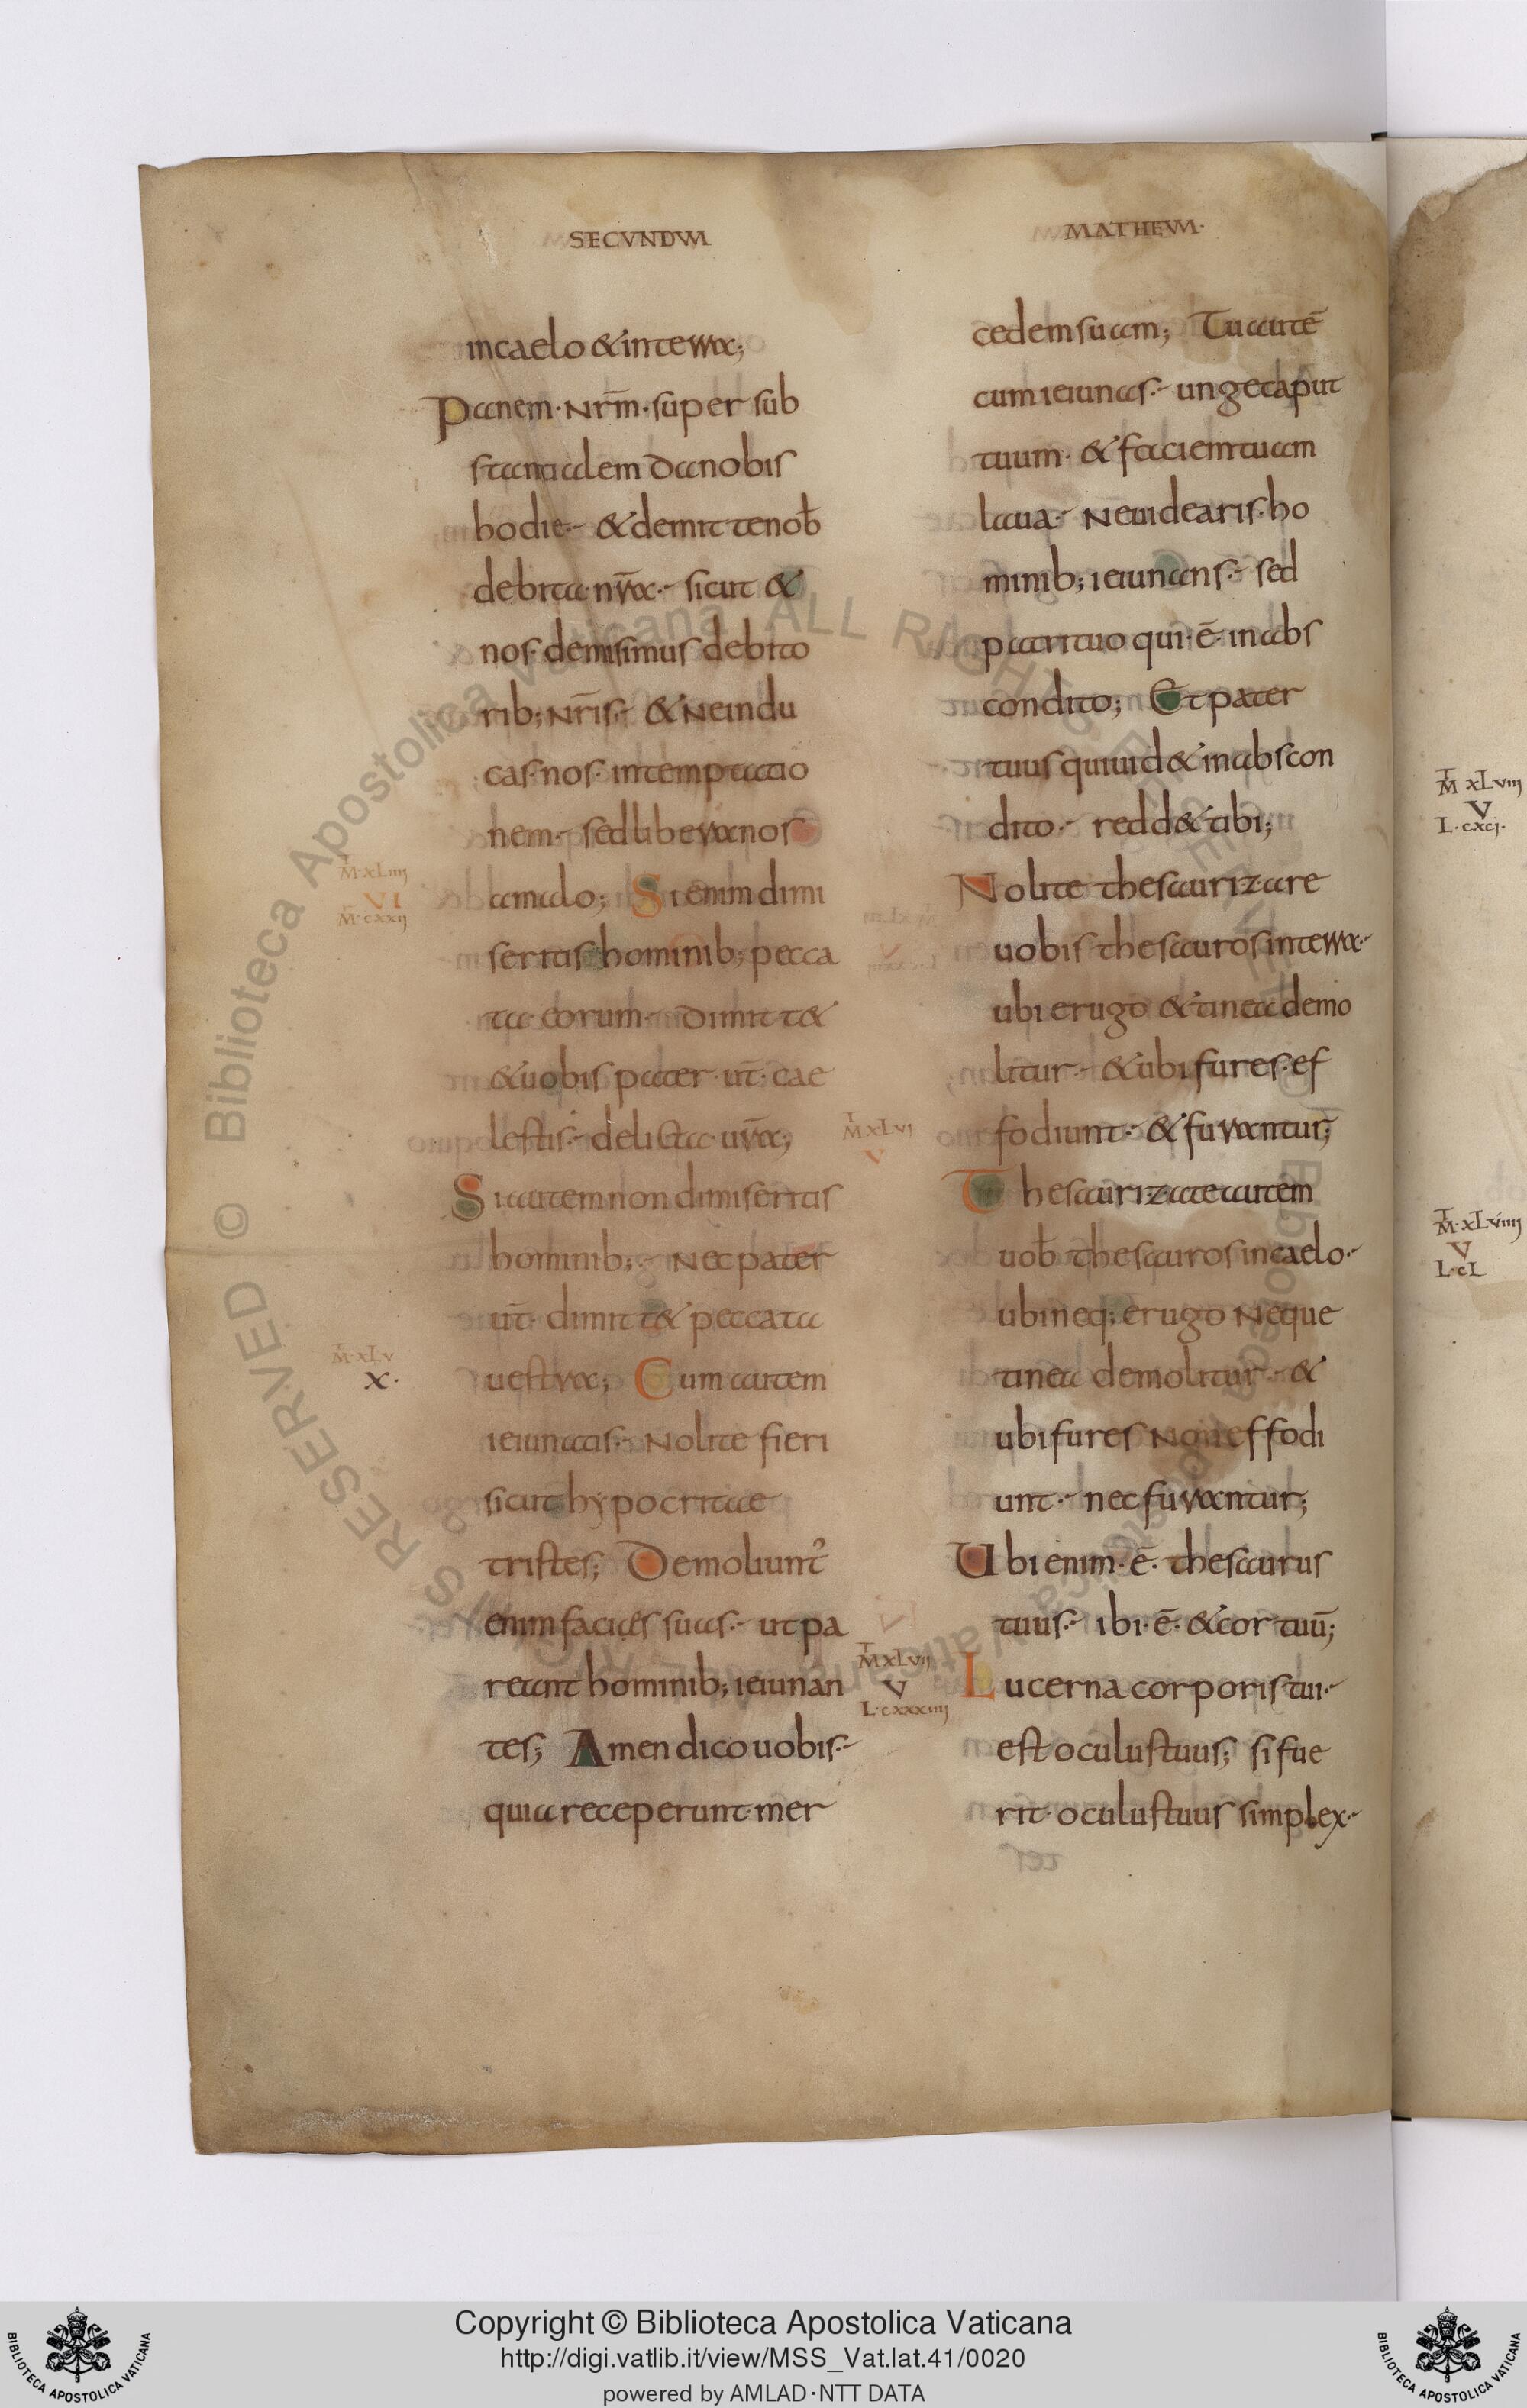 SECVNDUM
in caelo & in terra;
Panem· Nrm̄· super sub
stantialem da nobis
hodie· & demitte nob̄
debita nr̄a· sicut &
nos demisimus debito
rib; Nr̄is· & Ne indu
cas nos intemptatio
nem· sed libera nos
a malo; Si enim dimi
seritis hominib; pecca
ta eorum· dimitt&
& uobis pater ur̄· cae
lestis· delicta ur̄a;
Si autem non dimiseritis
hominib;· Nec pater
ur̄· dimitt& peccata
uestra; Cum autem
ieiunatis· Nolite fieri
sicut hypocritae
tristes; Demoliunt᾽
enim facies suas· ut pa
reant hominib; ieiunan
tes; Amen dico uobis·
quia receperunt mer
T
M·xLiiij
VI
M·cxxij
T
M·xLv
X·
MATHEUM·
cedem suam; Tu autē
cum ieiunas· unge caput
tuum· & faciem tuam
laua· Ne uidearis ho
minib; ieiunans· sed
patri tuo qui· ē· in abs
condito; Et pater
tuus qui uid& in abscon
dito· redd& tibi;
Nolite thesaurizare
uobis thesauros in terra·
ubi erugo & tinea demo
litur· & ubi fures ef
fodiunt· & furantur;
Thesaurizate autem
uob̄ thesauros in caelo·
ubi neq; erugo Neque
tinea demolitur· &
ubi fures Non effodi
unt· nec furantur;
Ubi enim· ē· thesaurus
tuus· ibi· ē· & cor tuū;
Lucerna corporis tui·
est oculus tuus; si fue
rit· oculus tuus simplex·
T
M·xLvi
V
T
M·xLvij
V
L·cxxxiiij
T
M xLviij
V
L·cxcj·
T
M·xLviiij
V
L·cL
Copyright © Biblioteca Apostolica Vaticana
http://digi.vatlib.it/view/MSS_Vat.lat.41/0020
powered by AMLAD·NTT DATA
BIBLIOTECA APOSTOLICA VATICANA
BIBLIOTECA APOSTOLICA VATICANA
© Biblioteca Apostolica Vaticana ALL RIGHTS RESERVED